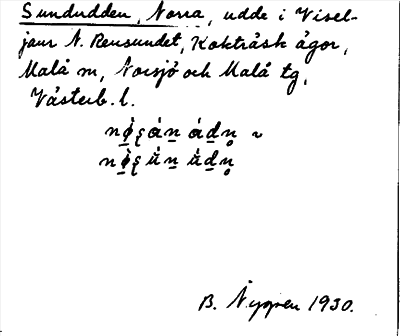 Sundudden, Norra, udde i Visel-
jaur N. Rensundet, Kokträsk ägor,
Malå sn, Norsjö och Malå tg,
Västerb. l.
B. Nygren 1930.